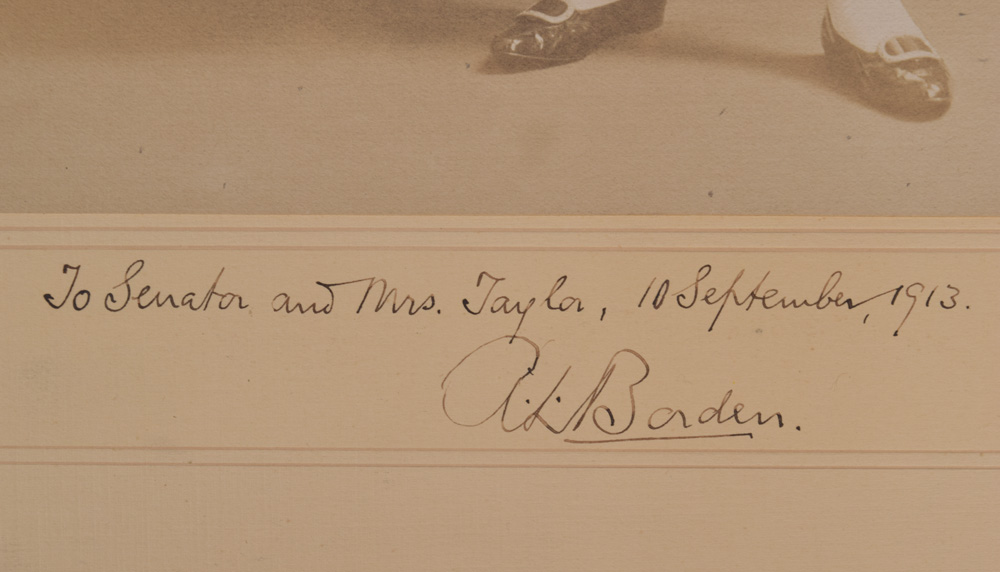 To Senator and Mrs. Taylor, 10 September, 1913.
R.L. Borden.